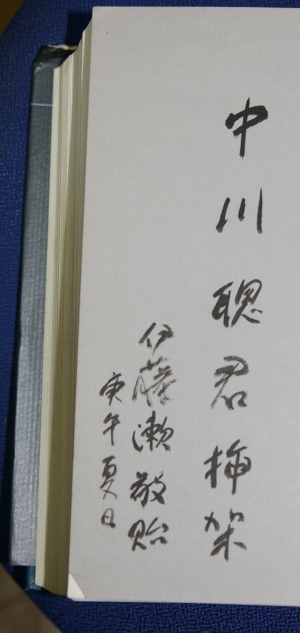 中川聰君插架
伊藤漱敬贻
庚午夏日